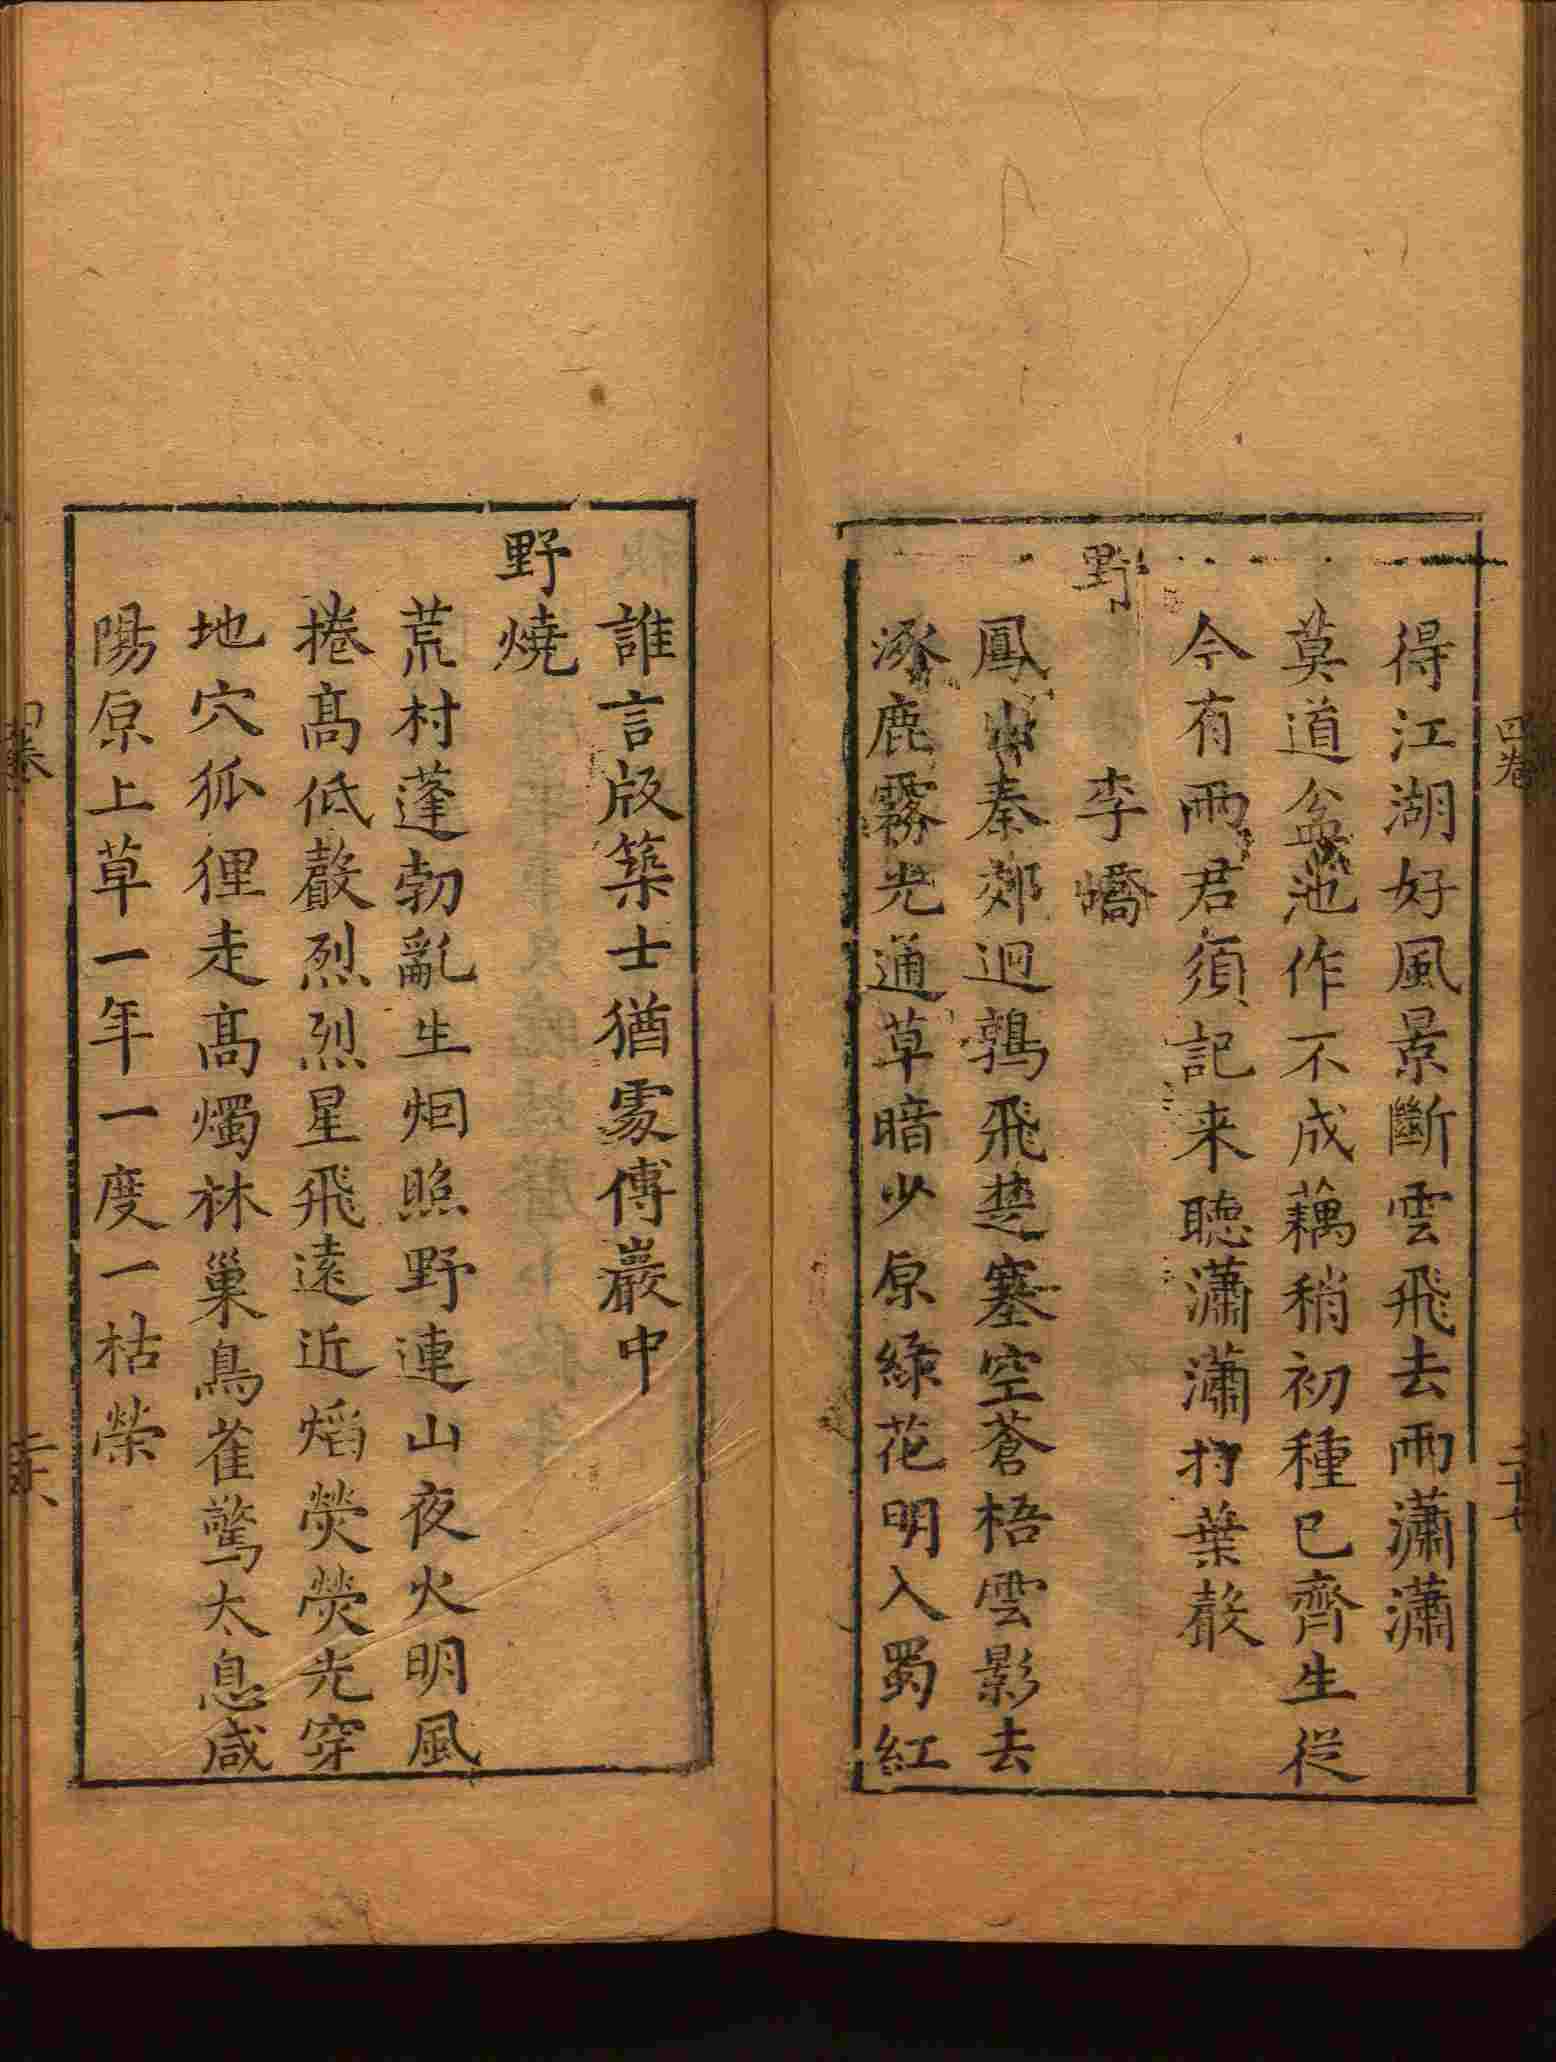 四卷
二十七
得江湖好風景斷雲飛去雨瀟瀟
莫道盆池作不成藕稍初種已齊生從
今有雨君須記来聴瀟瀟打葉聲
野
李嶠
鳳出秦郊迥鶉飛楚塞空蒼梧雲影去
涿鹿霧光通草暗少原緑花明入蜀紅
誰言版築士猶處傅巖中
野燒
荒村蓬勃亂生烟照野連山夜火明風
捲髙低聲烈烈星飛遠近熖熒熒光穿
地穴狐狸走髙燭林巢鳥雀驚太息咸
陽原上草一年一度一枯榮
四卷
二十八